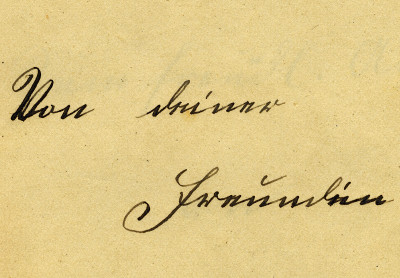 Von deiner
Freundin